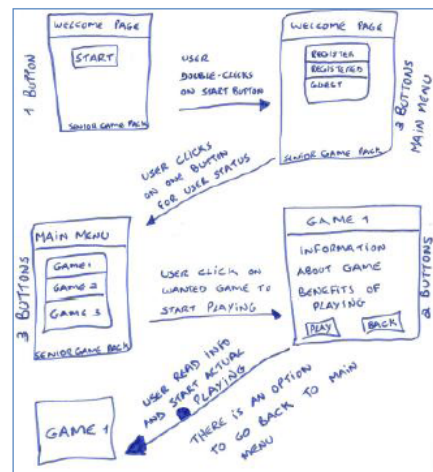 WELCOME PAGE
START
SENIOR GAME PACK
1 BUTTON
USER
DOUBLE-CLICKS
ON START BUTTON
WELCOME PAGE
REGISTER
REGISTERED
GUEST
SENIOR GAME PACK
3 BUTTONS
MAIN MENU
USER CLICKS
ON ONE BUTTON
FOR USER STATUS
MAIN MENU
GAME 1
GAME 2
GAME 3
SENIOR GAME PACK
3 BUTTONS
USER CLICK ON
WANTED GAME TO
START PLAYING
GAME 1
INFORMATION
ABOUT GAME
BENEFITS OF
PLAYING
PLAY
BACK
2 BUTTONS
USER READ INFO
AND START ACTUAL
PLAYING
THERE IS AN OPTION
TO GO BACK TO MAIN
MENU
GAME 1